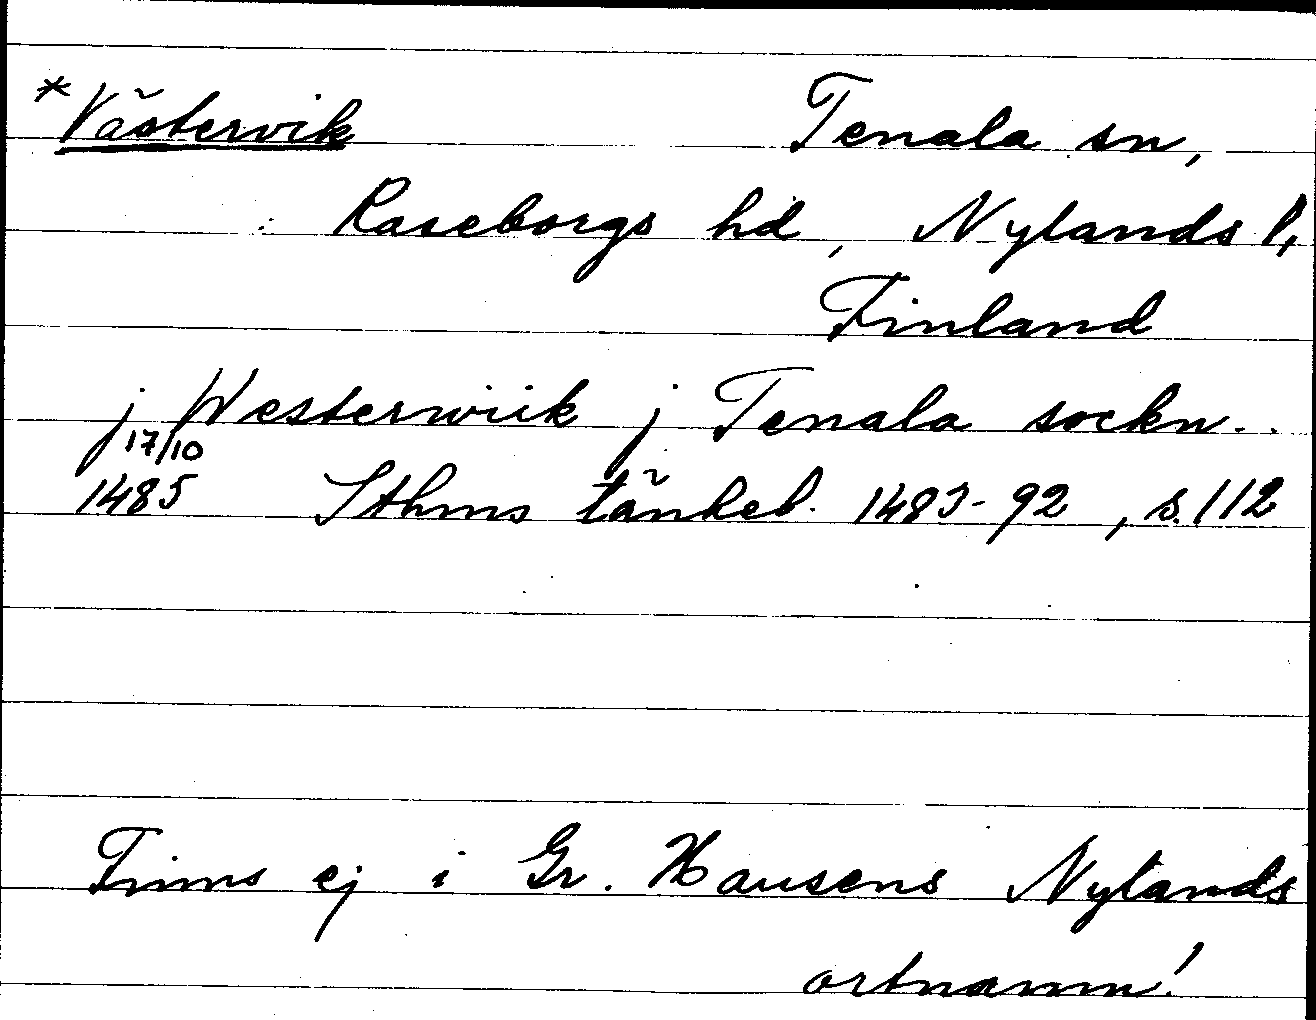 *Västervik Tenala sn,
Raseborgs hd, Nylands l,
Finland
j Westerwiik j Tenala sockn..
17/10
1485 Sthms tänkeb. 1483-92, s. 112
Finns ej i Gr. Hausens Nylands
ortnamn!